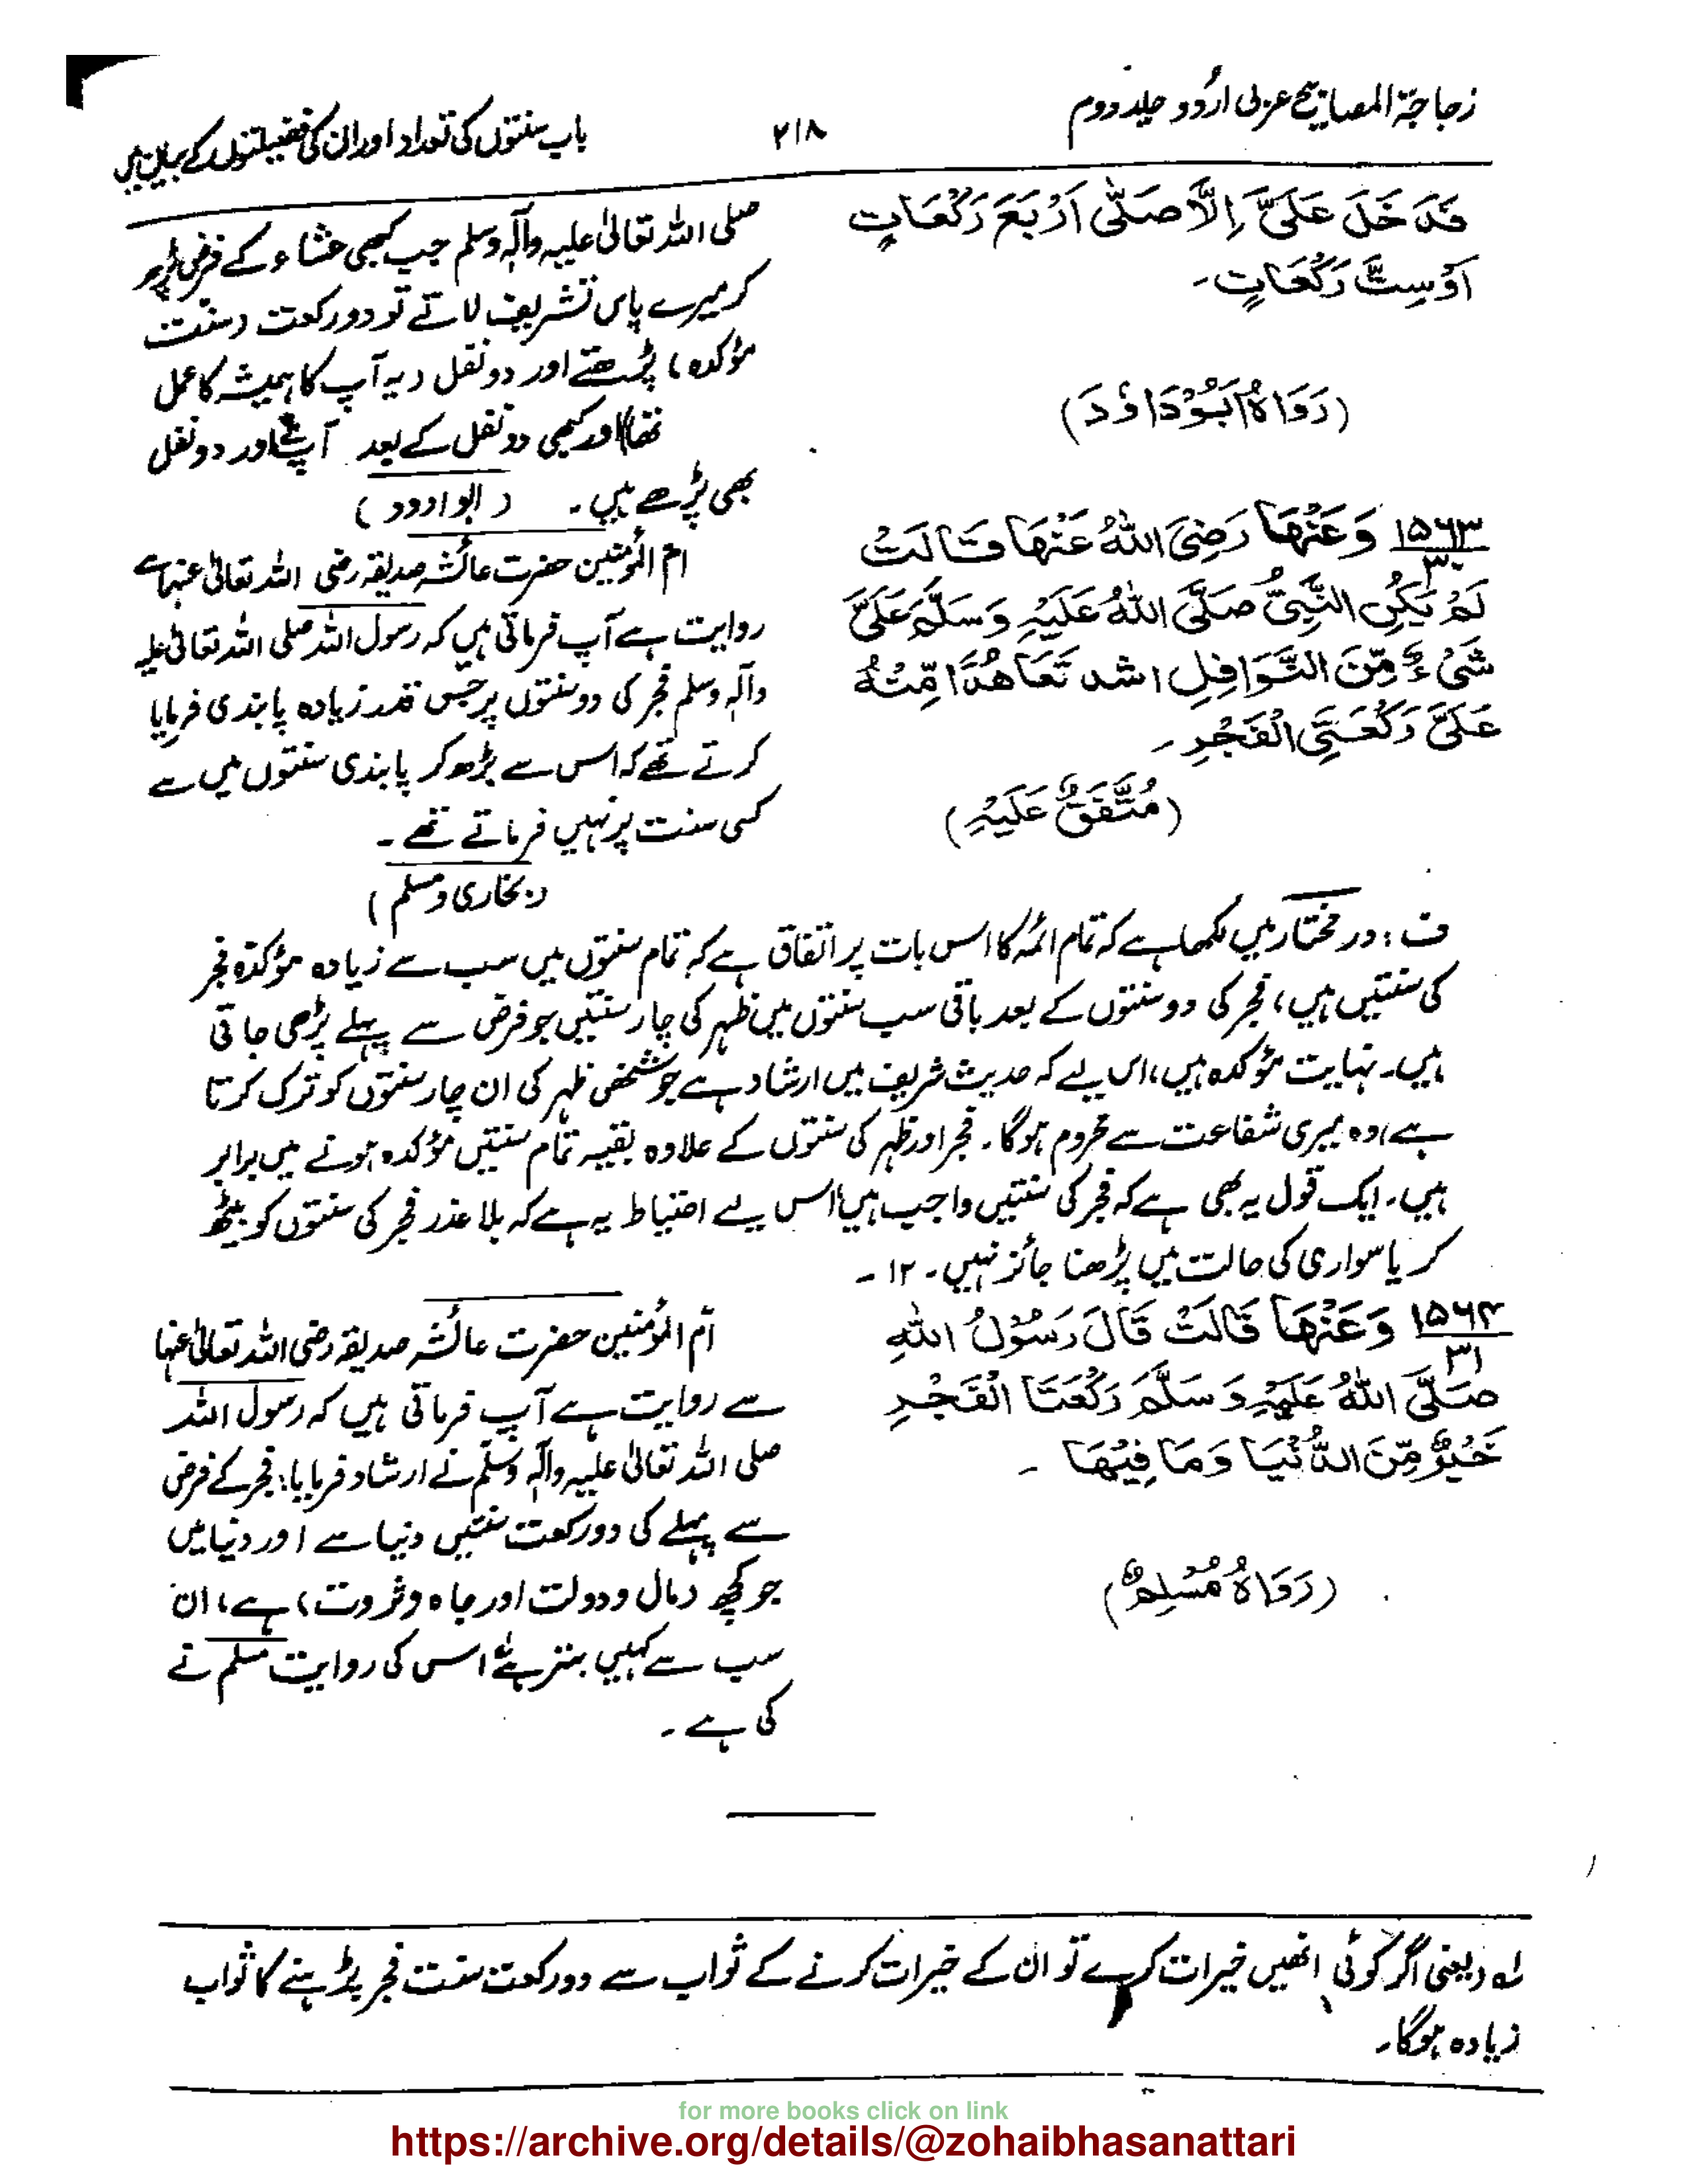 زجاجۃ المصابیح عربی اردو جلد دوم
۲۱۸
باب سنتوں کی تعداد اور ان کی فضیلتوں کے بیان میں
فَدَخَلَ عَلَیَّ اِلَّا صَلّٰی اَرْبَعَ رَكْعَاتٍ
اَوْسِتَّ رَكْعَاتٍ۔
(رَوَاهُ اَبُوْدَاوٗدَ)
صلی اللہ تعالیٰ علیہ وآلہٖ وسلم جب کبھی عشاء کے فرض پڑھ
کر میرے پاس تشریف لاتے تو دو رکعت (سنت
مؤکدہ) پڑھتے اور دو نفل (یہ آپ کا ہمیشہ کا عمل
تھا) اور کبھی دو نفل کے بعد آپؐ اور دو نفل
بھی پڑھے ہیں۔ (ابو اوود)
۱۵۶۳
۳۰
وَعَنْهَا رَضِیَ اللهُ عَنْهَا قَالَتْ
لَمْ یَكُنِ النَّبِیُّ صَلَّی اللهُ عَلَیْهِ وَسَلَّمَ عَلَیَّ
شَیْءٍ مِّنَ النَّوَافِلِ اشد تَعَاهُدًا مِّنْهُ
عَلَیَّ رَكْعَتَیِ الْفَجْرِ۔
(مُتَّفَقٌ عَلَیْهِ)
ام المؤمنین حضرت عائشہ صدیقہ رضی اللہ تعالیٰ عنہا سے
روایت ہے آپ فرماتی ہیں کہ رسول اللہ صلی اللہ تعالیٰ علیہ
وآلہٖ وسلم فجر کی دو سنتوں پر جس قدر زیادہ پابندی فرمایا
کرتے تھے کہ اس سے بڑھ کر پابندی سنتوں میں سے
کسی سنت پر نہیں فرماتے تھے۔
(بخاری و مسلم)
ف: در مختار میں لکھا ہے کہ تمام ائمہ کا اس بات پر اتفاق ہے کہ تمام سنتوں میں سب سے زیادہ مؤکدہ فجر
کی سنتیں ہیں، فجر کی دو سنتوں کے بعد باقی سب سنتوں میں ظہر کی چار سنتیں جو فرض سے پہلے پڑھی جاتی
ہیں۔ نہایت مؤکدہ ہیں، اس لیے کہ حدیث شریف میں ارشاد ہے جو شخص ظہر کی ان چار سنتوں کو ترک کرتا
ہے، وہ میری شفاعت سے محروم ہوگا۔ فجر اور ظہر کی سنتوں کے علاوہ بقیہ تمام سنتیں مؤکدہ ہونے میں برابر
ہیں۔ ایک قول یہ بھی ہے کہ فجر کی سنتیں واجب ہیں، اس لیے احتیاط یہ ہے کہ بلا عذر فجر کی سنتوں کو بیٹھ
کر یا سواری کی حالت میں پڑھنا جائز نہیں۔ ۱۲۔
۱۵۶۴
۳۱
وَعَنْهَا قَالَتْ قَالَ رَسُوْلُ اللهِ
صَلَّی اللهُ عَلَیْهِ وَسَلَّمَ رَكْعَتَا الْفَجْرِ
خَیْرٌ مِّنَ الدُّنْیَا وَمَا فِیْهَا۔
(رَوَاهُ مُسْلِمٌ)
ام المؤمنین حضرت عائشہ صدیقہ رضی اللہ تعالیٰ عنہا
سے روایت ہے آپ فرماتی ہیں کہ رسول اللہ
صلی اللہ تعالیٰ علیہ وآلہٖ وسلم نے ارشاد فرمایا: فجر کے فرض
سے پہلے کی دو رکعت سنتیں دنیا سے اور دنیا میں
جو کچھ (مال و دولت اور جاہ و ثروت) ہے، ان
سب سے کہیں بہتر ہے اس کی روایت مسلم نے
کی ہے۔
لہ (یعنی اگر کوئی انھیں خیرات کرے تو ان کے خیرات کرنے کے ثواب سے دو رکعت سنت فجر پڑہنے کا ثواب
زیادہ ہوگا۔
for more books click on link
https://archive.org/details/@zohaibhasanattari